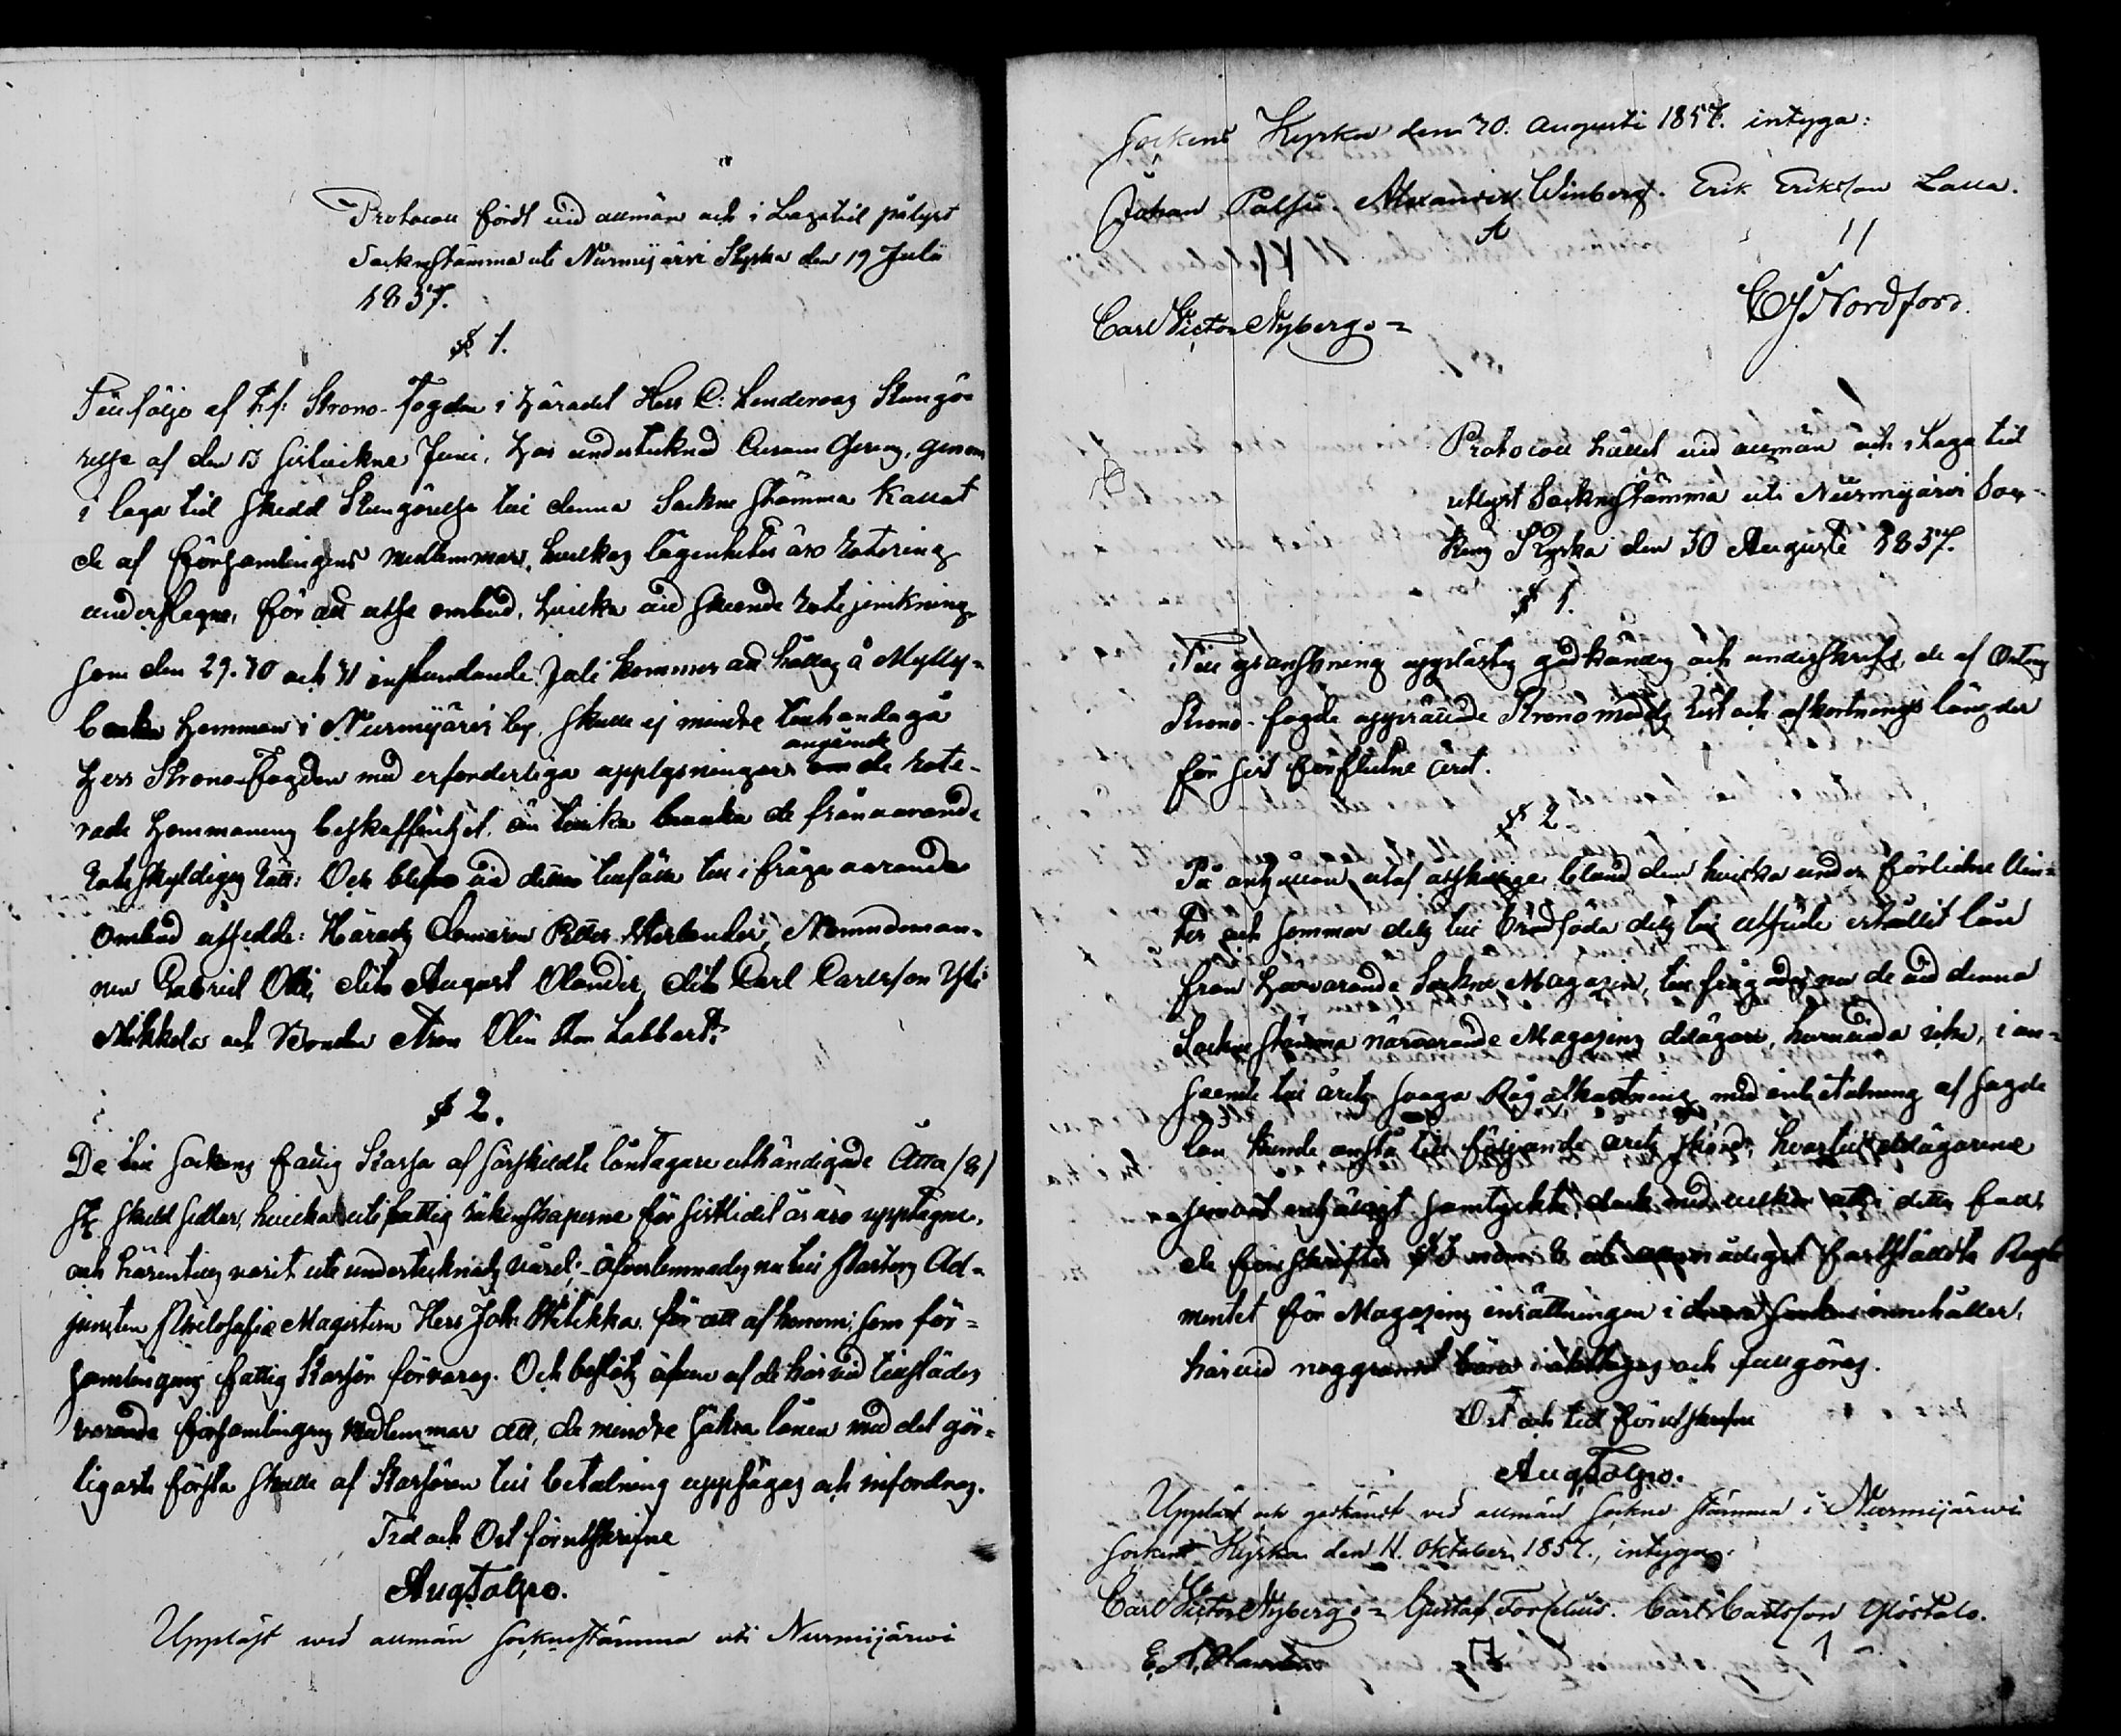 Protocoll fördt vid allmän och i Laga tid pålyst
Socknestämma uti Nurmijärvi Kyrka den 19 Julii
1857.
§ 1.
Till följe af t.f. Krono-Fogden i häradet Herr C: Lenderoos Kungö-
relse af den 13 sistvickne Junii, har undertecknad genom
i laga tid skedd Kungörelse till denna Sockne Stämma kallat
de af Församlingens medlemmar, hvilkas lägenheter äro rotering
underlagne, för att utse ombud, hvilka vid skeende Rotejemkning,
som den 29. 30 och 31 instundande Juli kommer att hållas å Mylly-
hemman i Nurmijärvi by, skulle ej mindre tillhandagå
Herr Krono-Fogden med erforderliga upplysningar om angående de rote-
rade hemmanens beskaffenhet, än bevaka de frånvarande
Roteskyldiges rätt: Och blefvo vid detta tillfälle till i fråga varande
ombud utsedde: Härads Domaren Petter Nämndeman-
nen Gabriel Olli, dito August Olander, dito Carl Carlsson Yli
Mikkola och Bonden Aron Olin
§ 2.
De till Sockens Fattig Kassa af särskildte låntagare uthändigade Åtta /8/
St. Skuld sedlar, hvilka uti fattig räkenskaperne för sistlidit år äro upptagne,
och härintills varit uti undertecknads vård; öfverlemnades nu till Pastors Ad-
juncten Philosofie Magistern Herr Joh: för att af honom, som för-
samlingens fattig Kassör förvaras. Och beslöts äfven af de härvid tillstädes
varande församlingens Medlemmar att, de mindre säkra lånen med det gör-
ligaste första skulle af Kassören till betalning uppsägas och infordras.
Tid och Ort förutskrifne
Aug. Tolpo.
Uppläst wid allmän Socknestämma uti Nurmijärwi
Sockens Kyrka den 30. Augusti 1857. intyga:
Johan Palsi. Alexander Winberg. Erik Eriksson Lalla.
Carl Victor Nyberg.
C J Nordfors.
Protocoll hållit vid allmän och i Laga tid
utlyst Socknestämma uti Nurmijärvi Soc-
kens Kyrka den 30 Augusti 1857.
§ 1.
Till granskning upplästes godkändes och underskrefs, de af Ortens
Krono-fogde upprättade Kronomedels Rest och afkortnings längder
för sist förflutne året.
§ 2
På anhållan utaf åtskillige bland dem hvilka under förlidne Vin-
ter och sommar dels till brödföda dels till utsäde erhållit lån
från härvarande Sockne Magazin, tillfrågades nu de vid denna
Sockne stämma närvarande Magazins delägare, huruvida icke, i an-
seende till årets svaga Råg afkastning med inbetalning af sagde
lån kunde anstå till följande årets skörd; hvartill delägarene
samtyckte, dock med vilkor att i detta fall
de föreskrifter § 3 mom: 2 uti nådigst fastställdta Regle
mentet för Magazins inrättningen i denna Socken innehåller,
härvid noggrant böra iakttagas och fullgöras.
Ort och tid förutskrefne
Aug. Tolpo.
Uppläst och godkändt wid allmän Sockne stämma i Nurmijärwi
Sockens Kyrka den 11. Oktober 1857., intyga:
Carl Victor Nyberg. Gustaf Forselius. Carl Carlsson Ylöstalo.